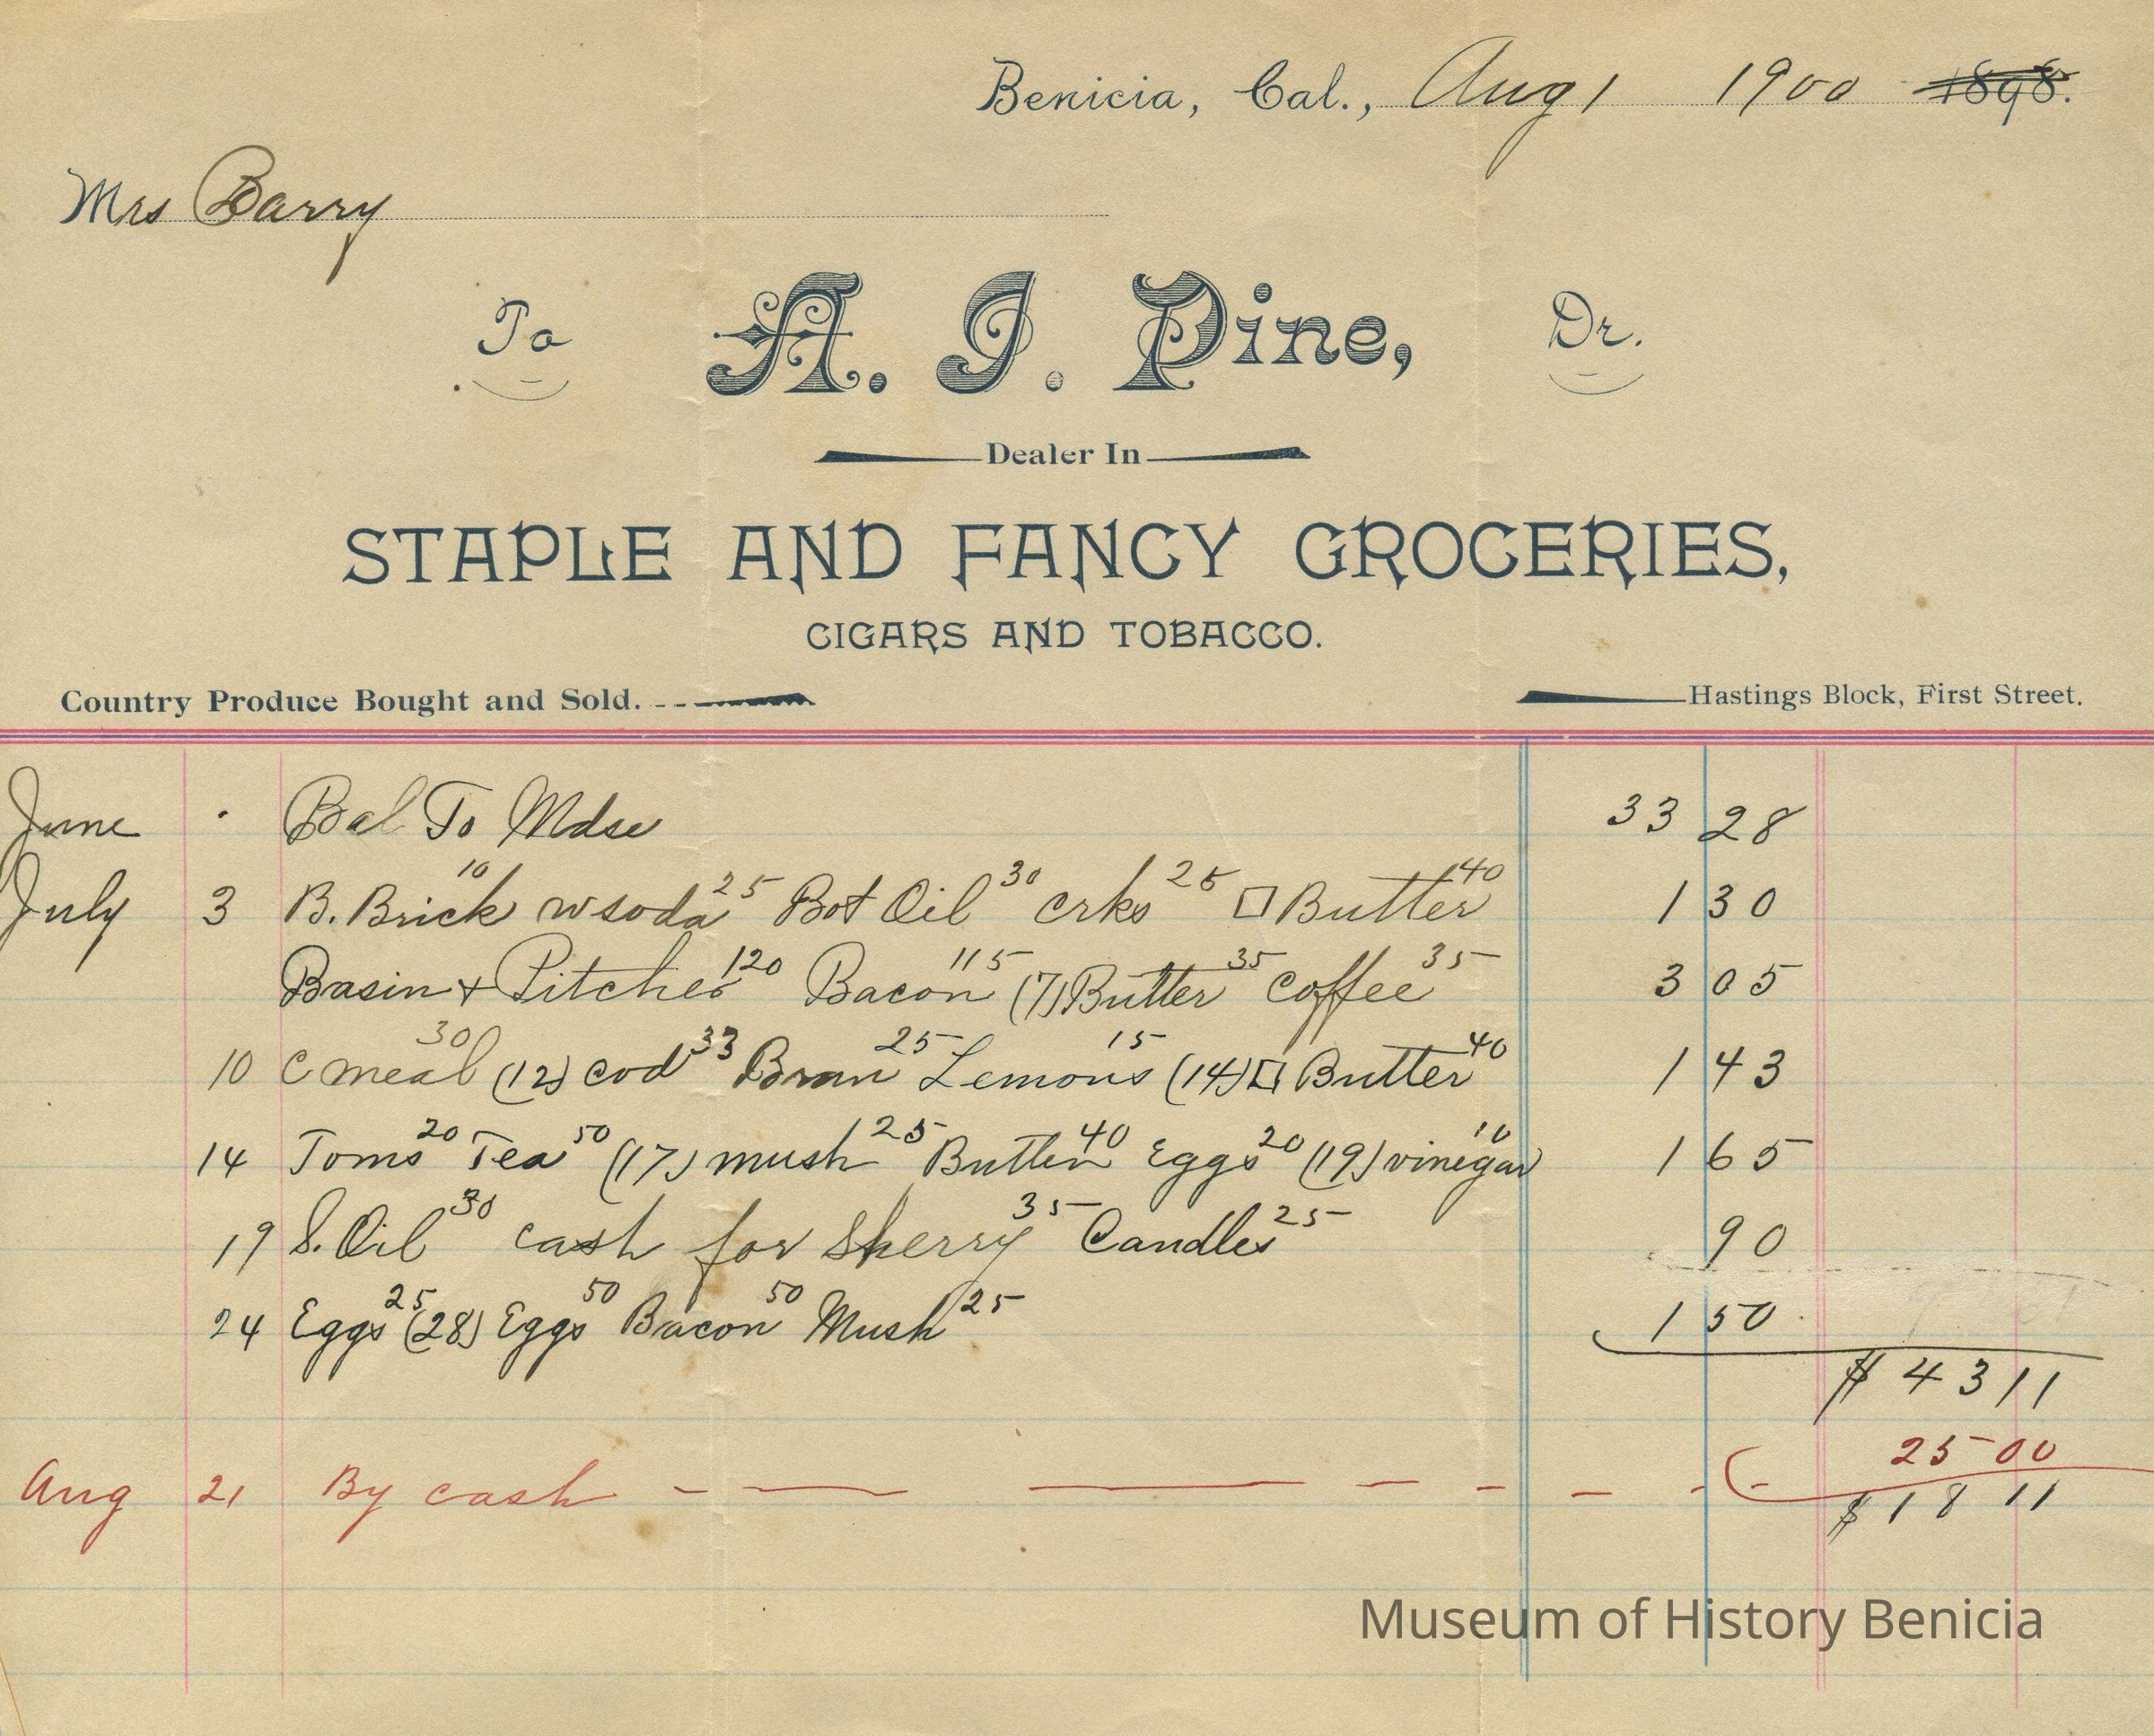 Benicia, Cal., Aug 1 1900 1898.
Mrs Barry
To A. J. Pine, Dr.
Dealer In
STAPLE AND FANCY GROCERIES,
CIGARS AND TOBACCO.
Country Produce Bought and Sold. Hastings Block, First Street.
June Bal To Mdse 33 28
July 3 B. Brick 10 w soda 25 Bot Oil 30 crks 25 □ Butter 40 1 30
Basin + Pitcher 120 Bacon 115 (7) Butter 35 coffee 35 3 05
10 C meal 30 (12) cod 33 Bran 25 Lemons 15 (14) □ Butter 40 1 43
14 Toms 20 Tea 50 (17) mush 25 Butter 40 Eggs 20 (19) vinegar 10 1 65
19 S. Oil 30 cash for Sherry 35 Candles 25 90
24 Eggs 25 (28) Eggs 50 Bacon 50 Mush 25 1 50
$ 43 11
Aug 21 By cash 25 00
$ 18 11
Museum of History Benicia